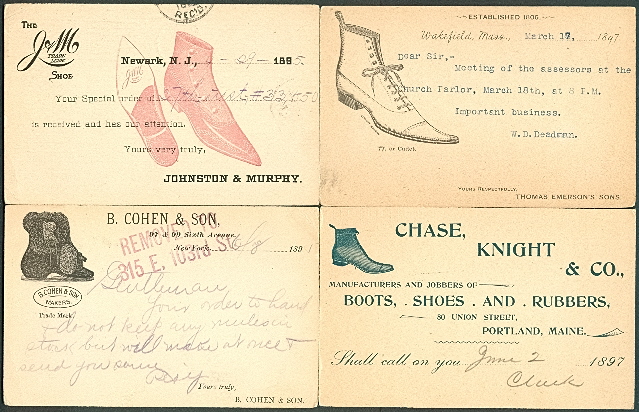 REC'D.
THE
J&M
TRADE MARK
SHOE
Newark, N. J., 1-29-1895
Your Special order of
is received and has our attention.
Yours very truly,
JOHNSTON & MURPHY.
ESTABLISHED 1806.
Wakefield, Mass., March 17, 1897
Dear Sir,-
Meeting of the assessors at the
Church Parlor, March 18th, at 8 P.M.
Important business.
W.D. Deadman.
77. or Cadet.
YOURS RESPECTFULLY,
THOMAS EMERSON'S SONS
B. COHEN & SON,
97 & 99 Sixth Avenue,
New York, 6/8 1891
REMOVED TO
315 E. 103rd St.
B. COHEN & SON
MAKERS
Trade Mark.
Gentlemen
Your order to hand
do not keep any mules in
stock but will make at once &
send you some
Yours truly,
B. COHEN & SON.
CHASE,
KNIGHT
& CO.,
MANUFACTURERS AND JOBBERS OF
BOOTS, . SHOES . AND . RUBBERS,
80 UNION STREET,
PORTLAND, MAINE.
Shall call on you June 2 1897
Clark